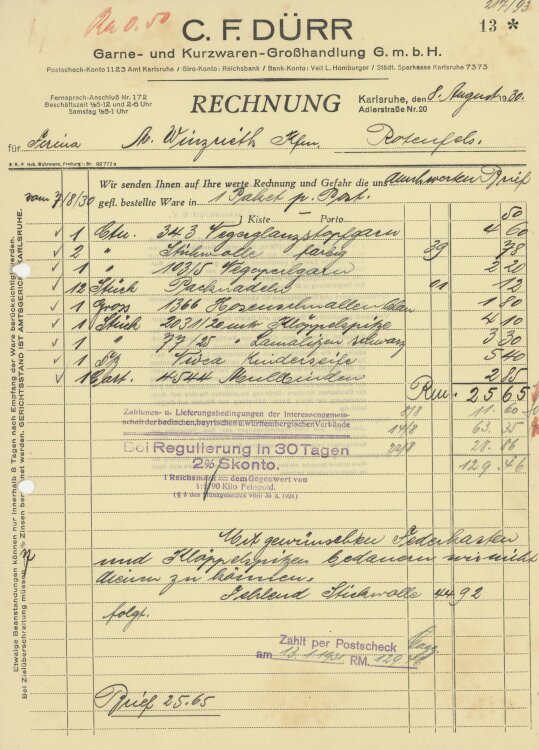 Ra 0.50
217/93
C. F. DÜRR
13 *
Garne- und Kurzwaren-Großhandlung G. m. b. H.
Postscheck-Konto 1123 Amt Karlsruhe / Giro-Konto: Reichsbank / Bank-Konto: Veit L. Homburger / Städt. Sparkasse Karlsruhe 7373
Fernsprech-Anschluß Nr. 172
Geschäftszeit ½8-12 und 2-6 Uhr
Samstag ½8-1 Uhr
RECHNUNG
Karlsruhe, den 8. August 1930.
Adlerstraße Nr. 20
für Firma M. Winzrieth Kfm. Rotenfels.
Wir senden Ihnen auf Ihre werte Rechnung und Gefahr die uns durch werten Brief
vom 7/8/30 gefl. bestellte Ware in 1 Paket p. Post.
1 Kiste Porto 50
1 Ctn. 343 Vegerglanzstopfgarn 4 60
2 " Stickwolle farbig 39 78
1 " 103/5 Vegoperlgarn 2 20
12 Stück Packnadeln 01 12
1 Gross 1366 Hosenschnallen 1 80
1 Stück 2031/20 mtr Klöppelspitze 4 10
1 " 77/25 " schwarz 3 30
5 40
1 Cart. 4544 Mullbinden 2 85
Rm. 25 65
Zahlungs- u. Lieferungsbedingungen der Interessengemein-
schaft der badischen, bayrischen u. württembergischen Verbände
8/8 11. 60
14/8 63. 35
22/8 28. 86
129. 46
Bei Regulierung in 30 Tagen
2% Skonto.
1 Reichsmark == dem Gegenwert von
1:2790 Kilo Feingold.
(§ 2 des Münzgesetzes vom 30. 8. 1924)
Mit gewünschten Federkasten
und Klöppelspitzen bedauern wir nicht
dienen zu können.
Fehlend Stickwolle 4492
folgt.
Zahlt per Postscheck
am 13.1.1931 RM. 129.46
Brief 25.65
Etwaige Beanstandungen können nur innerhalb 8 Tagen nach Empfang der Ware berücksichtigt werden.
Bei Zielüberschreitung müssen % Zinsen berechnet werden. GERICHTSSTAND IST AMTSGERICHT KARLSRUHE.